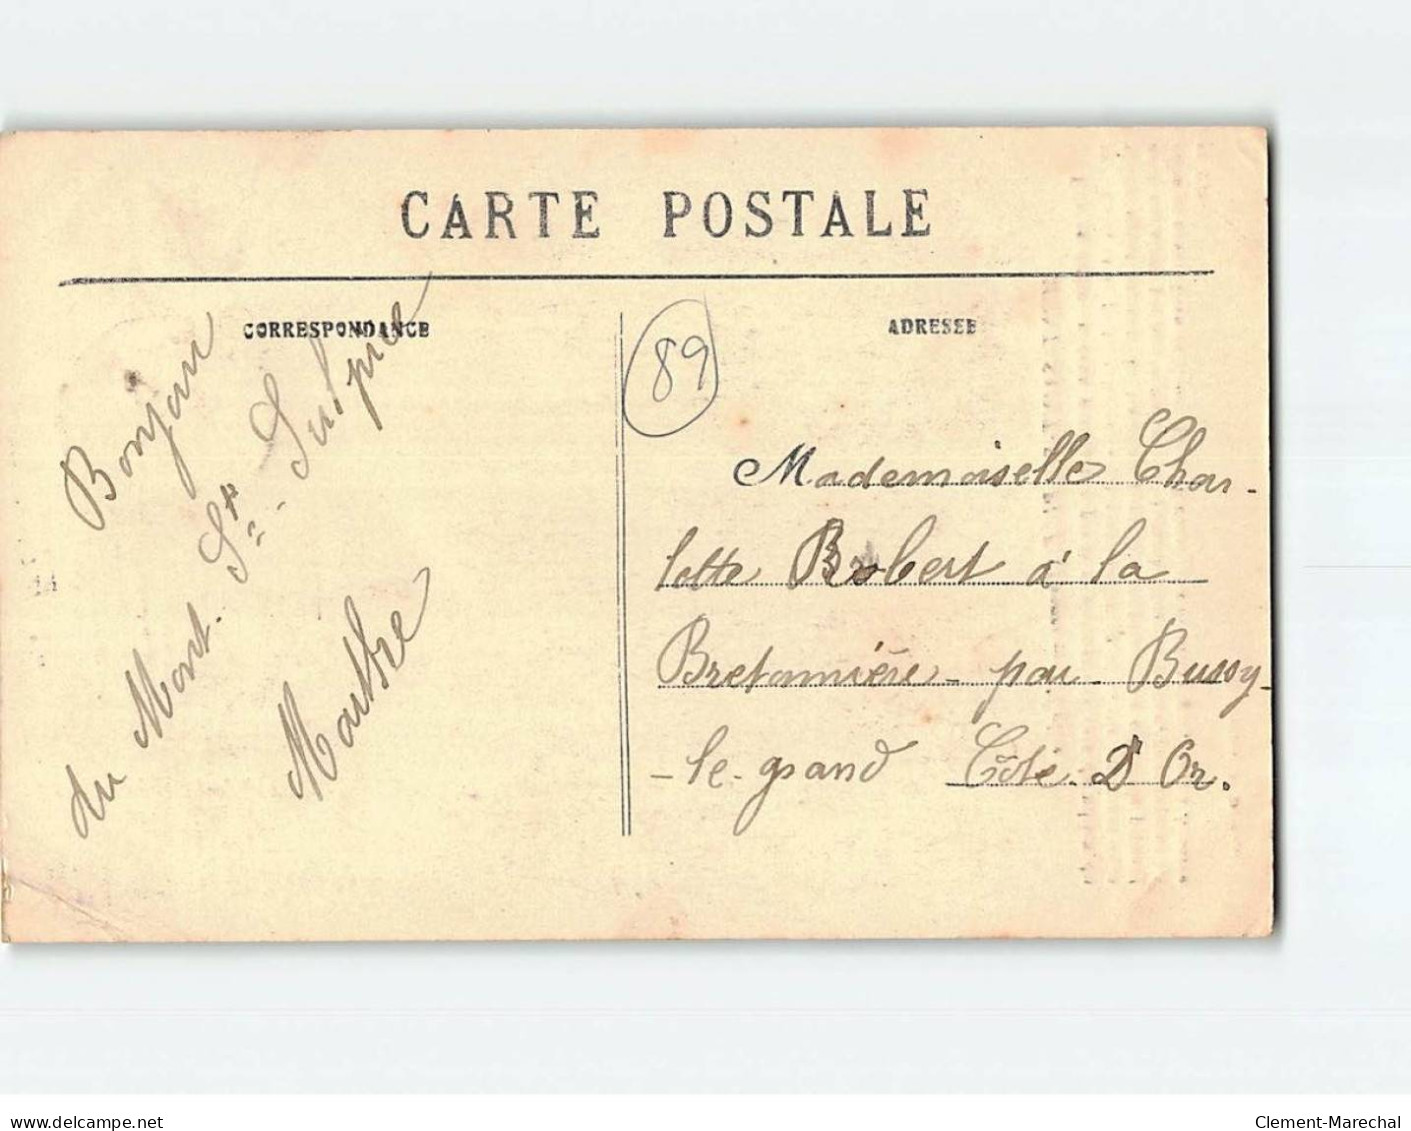 CARTE POSTALE
CORRESPONDANCE
ADRESSE
89
Bonjour
du Mont. St - Sulpice
Marthe
Mademoiselle Char-
lotte Robert à la
Bretonnière - par - Bussy-
- le - grand Côte D'Or.
delcampe.net
Clement-Marechal